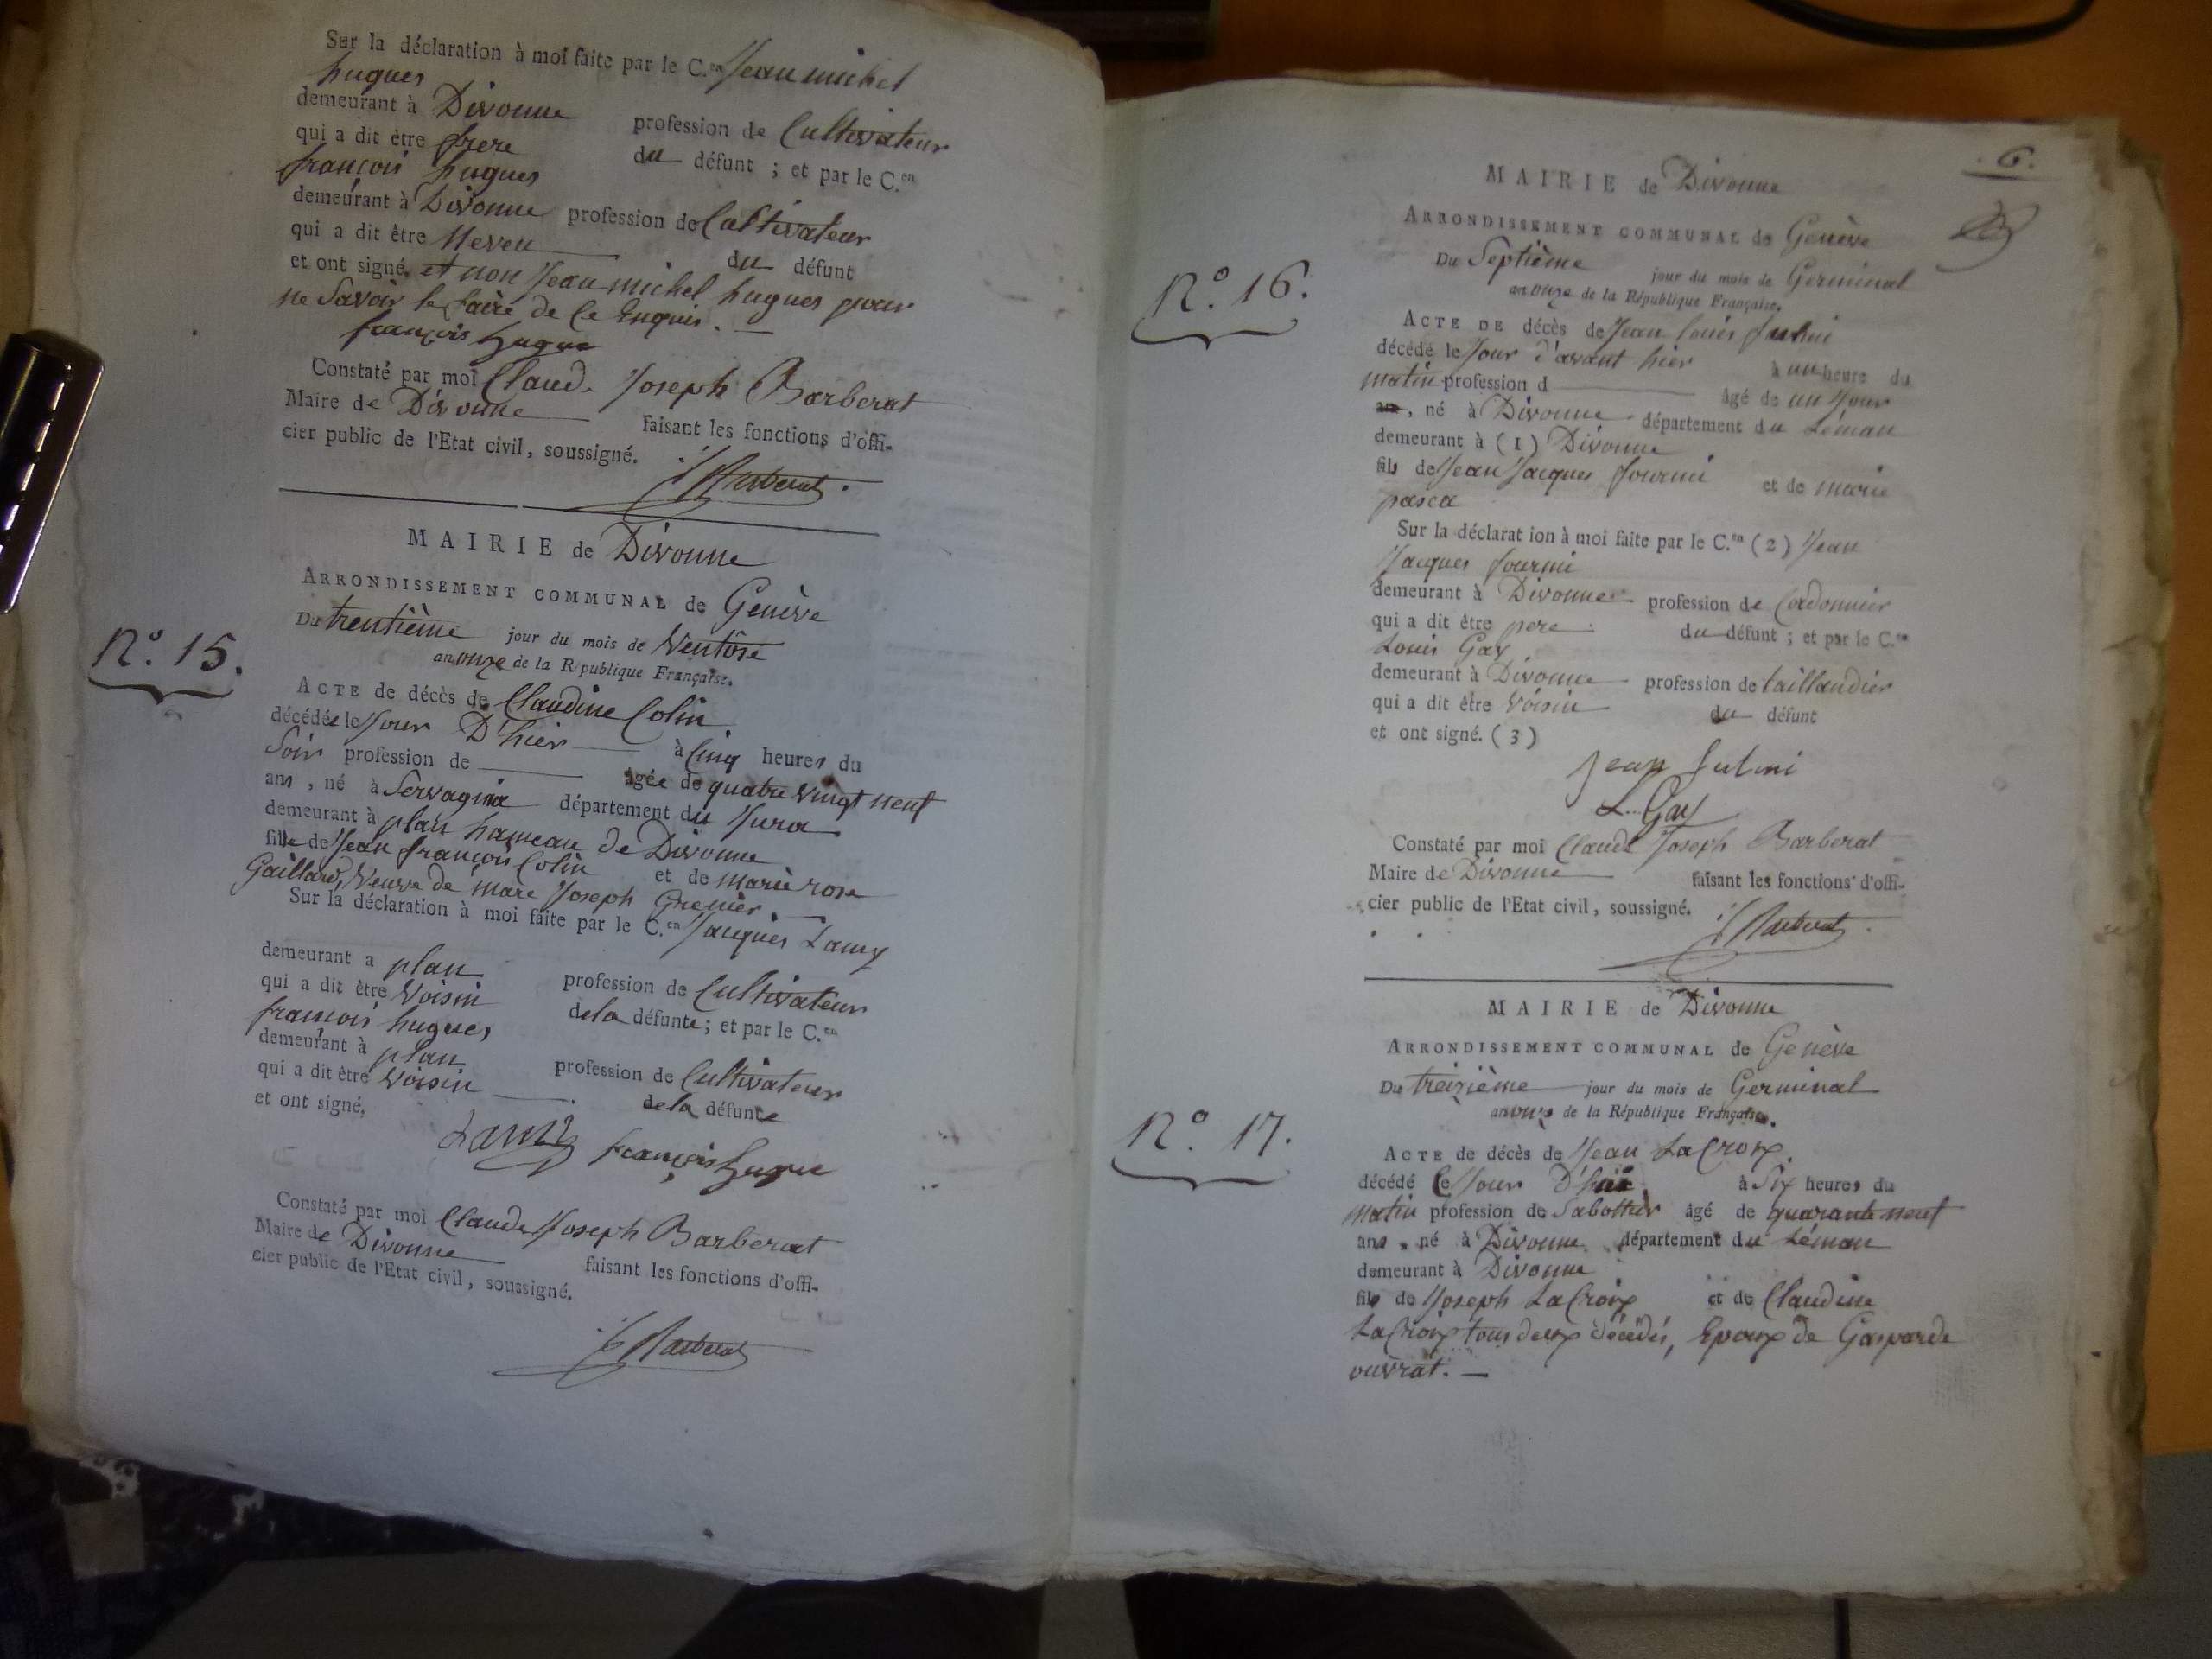 Sur la déclaration à moi faite par le C.en Jean michel
hugues
demeurant à Divonne profession de Cultivateur
qui a dit être frere du défunt ; et par le C.en
françois hugues
demeurant à Divonne profession de Cultivateur
qui a dit être Neveu du défunt
et ont signé, et non Jean michel hugues pour
ne Savoir le faire de ce Enquis.
françois hugue
Constaté par moi Claude Joseph Barberat
Maire de Divonne faisant les fonctions d'offi-
cier public de l'Etat civil, soussigné.
Barberat
MAIRIE de Divonne
ARRONDISSEMENT COMMUNAL de Genève
Du trentième jour du mois de Ventôse
an onze de la République Française.
N.° 15.
ACTE de décès de Claudine Colin
décédée le Jour D'hier à Cinq heures du
Soir profession de âgée de quatre vingt neuf
ans, né à Servagnia département du Jura
demeurant à plan hameau de Divonne
fille de Jean françois Colin et de marie rose
Gaillard, Veuve de marc Joseph Grenier.
Sur la déclaration à moi faite par le C.en Jacques Lamy
demeurant a plan profession de Cultivateur
qui a dit être Voisin de la défunte; et par le C.en
françois hugues
demeurant à plan profession de Cultivateur
qui a dit être Voisin de la défunte
et ont signé.
Lamy françois hugue
Constaté par moi Claude Joseph Barberat
Maire de Divonne faisant les fonctions d'offi-
cier public de l'Etat civil, soussigné.
Barberat
6.
MAIRIE de Divonne
ARRONDISSEMENT COMMUNAL de Genève
Du Septième jour du mois de Germinal
an onze de la République Française.
N.° 16.
ACTE DE décès de Jean Louis fulmi
décédé le Jour d'avant hier à un heure du
matin profession d âgé de un Jour
an, né à Divonne département du Léman
demeurant à (1) Divonne
fils de Jean Jacques fourmi et de marie
pasca
Sur la déclarat ion à moi faite par le C.en (2) Jean
Jacques fourmi
demeurant à Divonne profession de Cordonnier
qui a dit être pere du défunt ; et par le C.en
Louis Gay
demeurant à Divonne profession de taillandier
qui a dit être Voisin du défunt
et ont signé. (3)
Jean fulmi
L. Gay
Constaté par moi Claude Joseph Barberat
Maire de Divonne faisant les fonctions d'offi-
cier public de l'Etat civil, soussigné.
Barberat
MAIRIE de Divonne
ARRONDISSEMENT COMMUNAL de Genève
Du treizième jour du mois de Germinal
an onze de la République Française.
N.° 17.
ACTE de décès de Jean LaCroix.
décédé le Jour D'hier à Six heures du
matin profession de Sabottier âgé de quarante neuf
ans, né à Divonne département du Léman
demeurant à Divonne
fils de Joseph LaCroix et de Claudine
LaCroix tous deux décédés, Epoux de Gasparde
ouvrat.